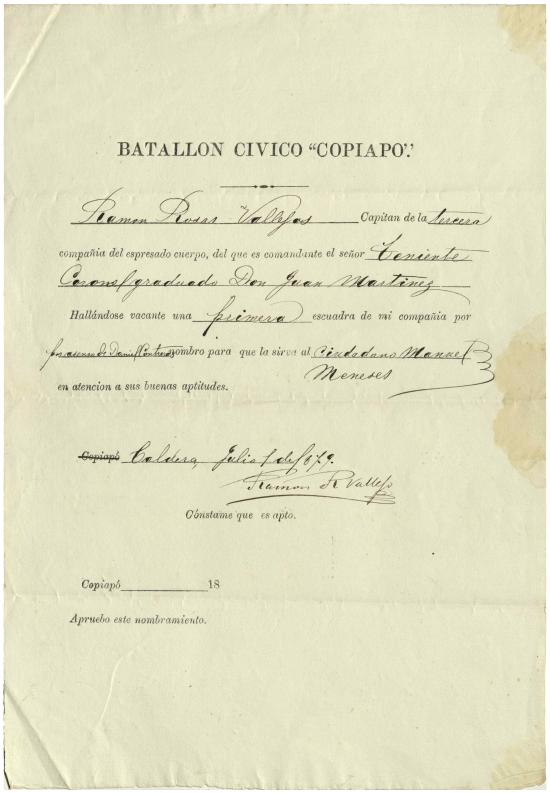 BATALLON CIVICO "COPIAPO".
Ramon Rosas Vallejos Capitan de la tercera
compañia del espresado cuerpo, del que es comandante el señor Teniente
Coronel graduado Don Juan Martinez
Hallándose vacante una primera escuadra de mi compañia por
por asenso de Daniel nombro para que la sirva al ciudadano Manuel
Meneses
en atencion a sus buenas aptitudes.
Copiapó Caldera, Julio 1 de 1879.
Ramon R Vallejo
Cónstame que es apto.
Copiapó 18
Apruebo este nombramiento.